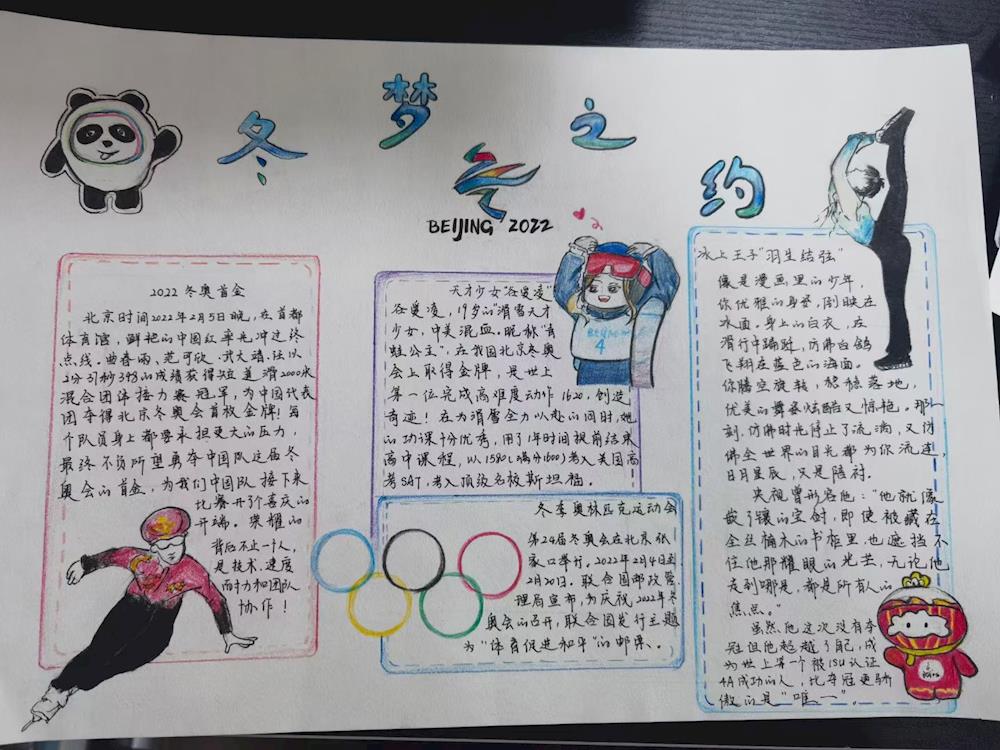 冬梦之约
BEIJING 2022
2022 冬奥首金
北京时间2022年2月5日晚,在首都
体育馆,鲜艳的中国红率先冲过终
点线。曲春雨、范可欣、武大靖、任以
2分37秒348的成绩获得短道滑2000米
混合团体接力赛冠军,为中国代表
团夺得北京冬奥会首枚金牌!每
个队员身上都要承担更大的压力,
最终不负所望勇夺中国队这届冬
奥会的首金,为我们中国队接下来
比赛开了个喜庆的
开端。荣耀的
背后不止一人,
是技术、速度
耐力和团队
协作!
天才少女“谷爱凌”
谷爱凌,19岁的“滑雪天才
少女,中美混血。昵称“青
蛙公主”,在我国北京冬奥
会上取得金牌,是世上
第一位完成高难度动作1620,创造
奇迹!在为滑雪全力以赴的同时,她
的功课十分优秀,用了1年时间提前结束
高中课程,以1580(满分1600)考入美国高
考SAT,考入顶级名校斯坦福。
BEIJING
4
冬季奥林匹克运动会
第24届冬奥会在北京张
家口举行,2022年2月4日到
2月20日。联合国邮政管
理局宣布,为庆祝2022年冬
奥会的召开,联合国发行主题
为“体育促进和平”的邮票。
冰上王子“羽生结弦”
像是漫画里的少年,
你优雅的身姿,倒映在
冰面。身上的白衣,在
滑行中蹁跹,仿佛白鸽
飞翔在蓝色的海面。
你腾空旋转,稳稳落地,
优美的舞姿炫酷又惊艳。那一
刻,仿佛时光停止了流淌,又仿
佛全世界的目光都为你流连,
日月星辰,又是陪衬。
央视曾形容他:“他就像
嵌了镶的宝剑,即使被藏在
金丝楠木的书柜里,也遮挡不
住他那耀眼的光芒,无论他
走到哪是,都是所有人的
焦点。”
虽然他这次没有夺
冠但他超越了自己,成
为世上第一个被ISU认证
4A成功的人,比夺冠更骄
傲的是“唯一”。